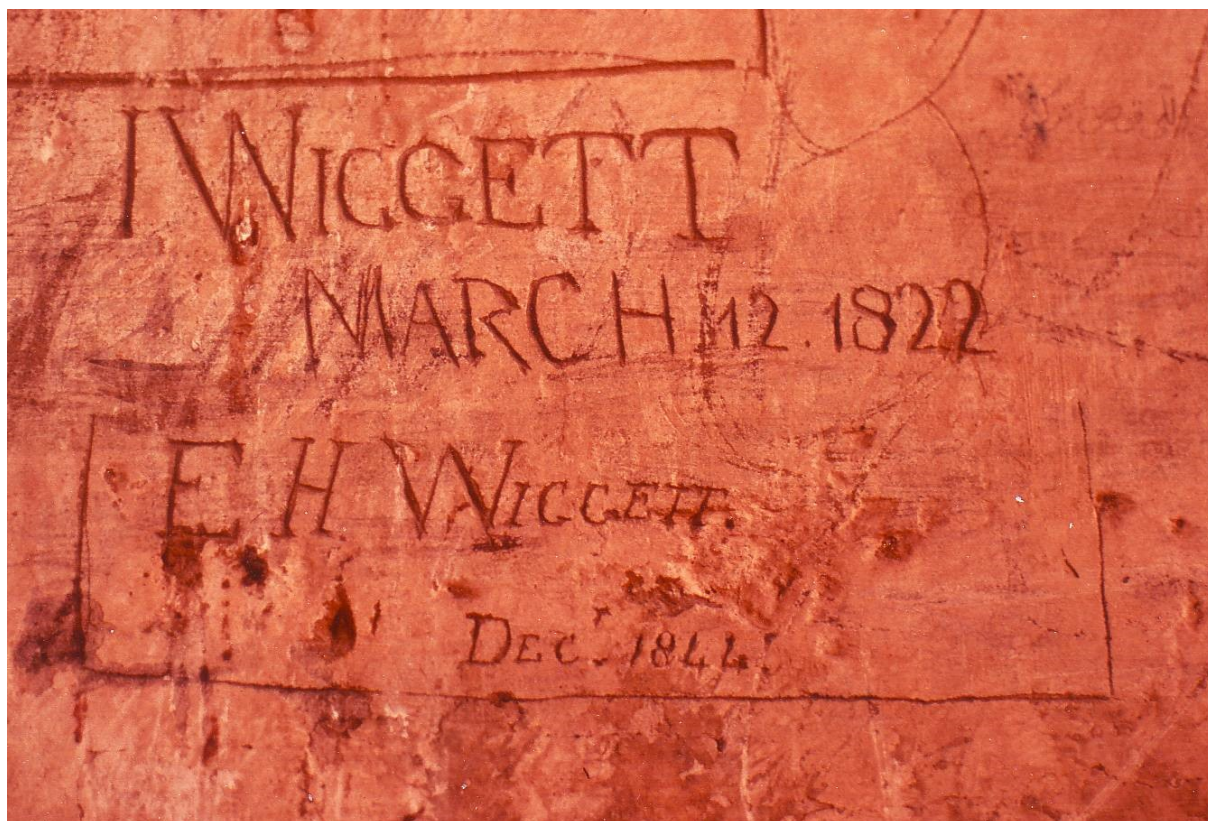 I WIGGETT
MARCH 12. 1822
E H WIGGETT.
DECr. 1844.